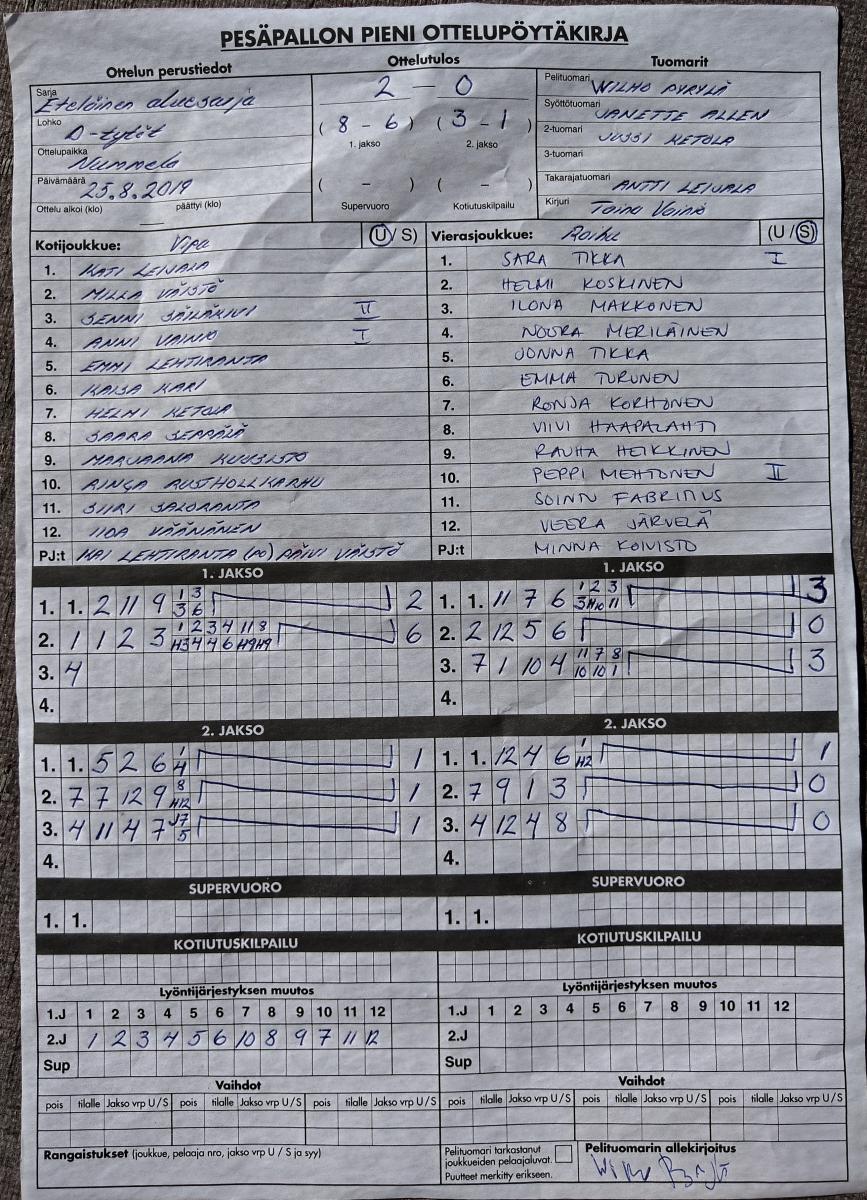 PESÄPALLON PIENI OTTELUPÖYTÄKIRJA
Ottelun perustiedot
Ottelutulos
Tuomarit
Sarja Eteläinen aluesarja
Lohko D-tytöt
Ottelupaikka Nummela
Päivämäärä 25.8.2019
Ottelu alkoi (klo) päättyi (klo)
2 – 0
( 8 – 6 ) ( 3 – 1 )
1. jakso 2. jakso
( – ) ( – )
Supervuoro Kotiutuskilpailu
Pelituomari WILHO PYRYLÄ
Syöttötuomari JANETTE ALLEN
2-tuomari JUSSI KETOLA
3-tuomari
Takarajatuomari ANTTI LEIVALA
Kirjuri Taina Vainio
Kotijoukkue: Vipa (U/S)
1. KATI LEIVALA
2. MILLA VÄISTÖ
3. SENNI SÄILÄKIVI II
4. ANNI VAINIO I
5. EMMI LEHTIRANTA
6. KAISA KARI
7. HELMI KETOLA
8. SAARA SEPPÄLÄ
9. MARJAANA KUUSISTO
10. RINGA RUSTHOLLKARHU
11. SIIRI SALORANTA
12. IIDA VÄÄNÄNEN
PJ:t KAI LEHTIRANTA (PO) PÄIVI VÄISTÖ
Vierasjoukkue: Roihu (U/S)
1. SARA TIKKA I
2. HELMI KOSKINEN
3. ILONA MAKKONEN
4. NOORA MERILÄINEN
5. JONNA TIKKA
6. EMMA TURUNEN
7. RONJA KORHONEN
8. VIIVI HAAPALAHTI
9. RAUHA HEIKKINEN
10. PEPPI MEHTONEN II
11. SOINTU FABRITIUS
12. VEERA JÄRVELÄ
PJ:t MINNA KOIVISTO
1. JAKSO
1. 1. 2 11 9 1 3 2
3 6
2. 1 1 2 3 1 2 3 4 11 3 6
H3 4 4 6 H9 H9
3. 4
4.
1. JAKSO
1. 1. 11 7 6 1 2 3 3
3 H10 11
2. 2 12 5 6 0
3. 7 1 10 4 11 7 8 3
10 10 1
4.
2. JAKSO
1. 1. 5 2 6 1 1
4
2. 7 7 12 9 8 1
H12
3. 4 11 4 7 J7 1
5
4.
2. JAKSO
1. 1. 12 4 6 1 1
H2
2. 7 9 1 3 0
3. 4 12 4 8 0
4.
SUPERVUORO
1. 1.
SUPERVUORO
1. 1.
KOTIUTUSKILPAILU
KOTIUTUSKILPAILU
Lyöntijärjestyksen muutos
1.J 1 2 3 4 5 6 7 8 9 10 11 12
2.J 1 2 3 4 5 6 10 8 9 7 11 12
Sup
Lyöntijärjestyksen muutos
1.J 1 2 3 4 5 6 7 8 9 10 11 12
2.J
Sup
Vaihdot
pois tilalle Jakso vrp U/S pois tilalle Jakso vrp U/S pois tilalle Jakso vrp U/S
Vaihdot
pois tilalle Jakso vrp U/S pois tilalle Jakso vrp U/S pois tilalle Jakso vrp U/S
Rangaistukset (joukkue, pelaaja nro, jakso vrp U / S ja syy)
Pelituomari tarkastanut
joukkueiden pelaajaluvat.
Puutteet merkitty erikseen.
Pelituomarin allekirjoitus